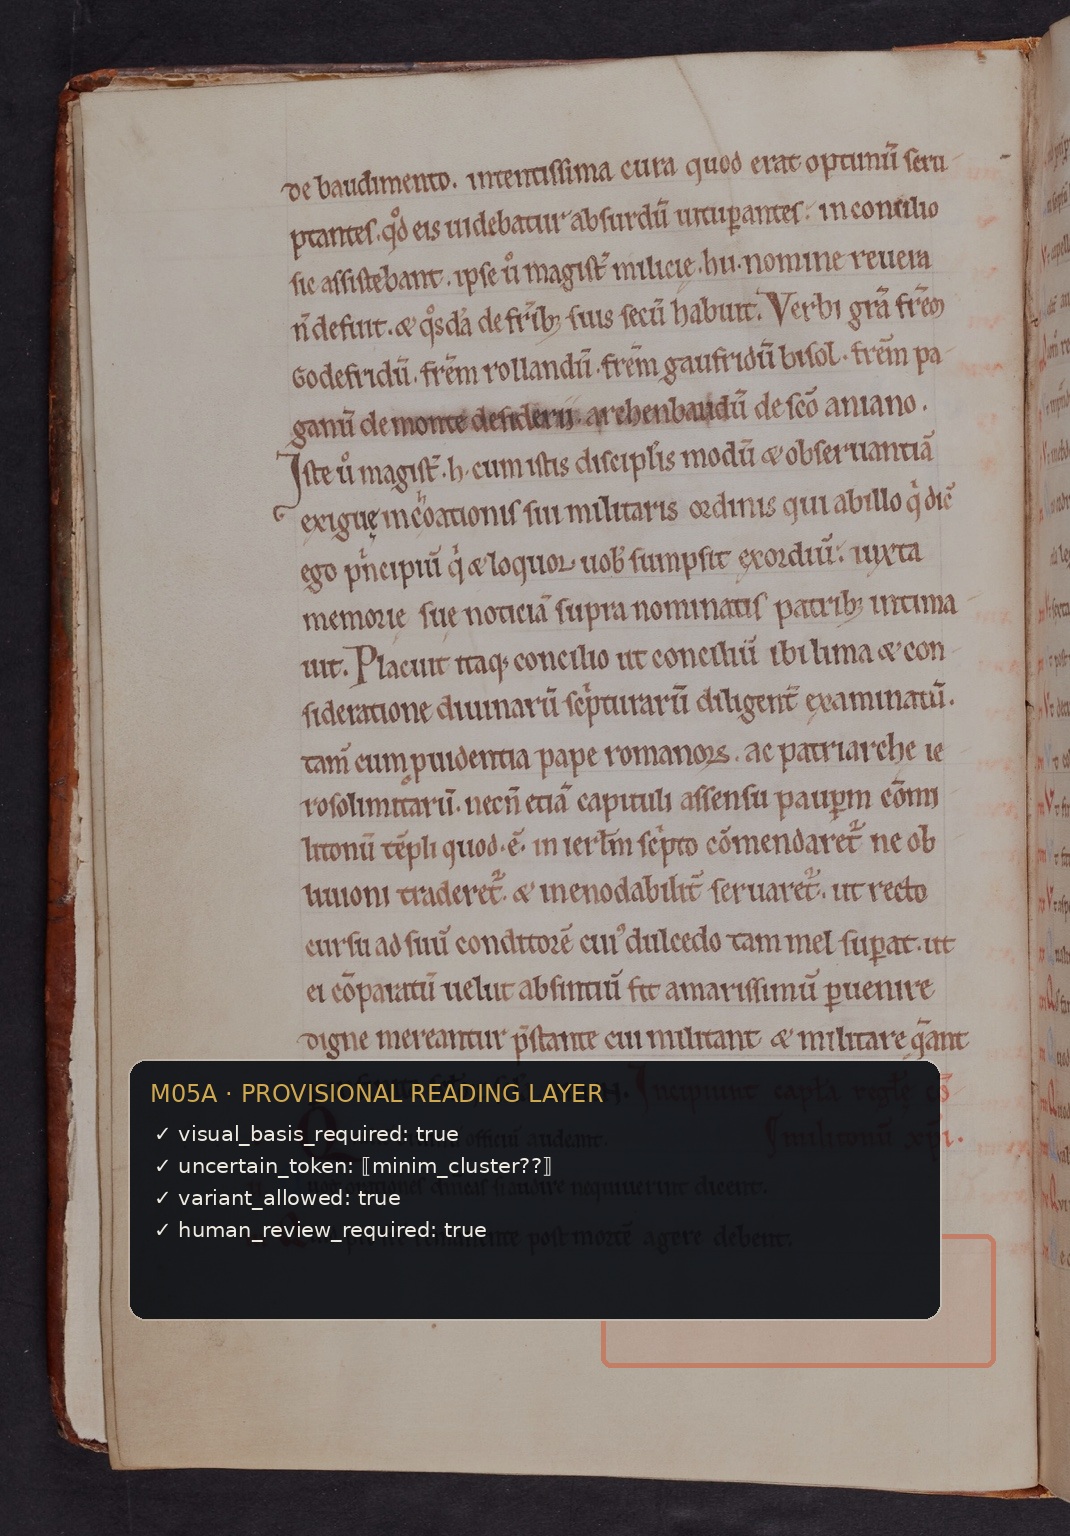 de baudimento. intentissima cura quod erat optimū scru
ptantes. qđ eis uidebatur absurdū uituꝑantes. in concilio
sic assistebant. ipse ů magisť milicie .hu. nomine reuera
ñ defuit. & qͦsdā de fřibꝫ suis secū habuit. Verbi grā frēm
Godefridū. frēm rollandū. frēm gaufridū bisol. frēm pa
ganū de monte desiderii. archenbaudū de scō aniano.
Iste ů magisť .h. cum istis disciplis modū & obseruantiā
exiguę inchoationis sui militaris ordinis qui ab illo qͥ dić
ego pͥncipiū qͥ & loquor uoƀ sumpsit exordiū. iuxta
memorię suę noticiā supra nominatis patribꝫ intima
uit. Placuit itaqꝫ concilio ut conciliū ibi lima & con
sideratione diuinarū scͥpturarū diligent̄ examinatū.
tam̄ cum ꝓuidentia pape romanoꝝ. ac patriarche ie
rosolimitarū. necñ etiā capituli assensu pauꝑum cōmi
litonū tēpli quod .ē. in ierlm̄ scͥpto cōmendaret᷑ ne ob
liuioni traderet᷑. & inenodabilit̄ seruaret᷑. ut recto
cursu ad suū conditorē cuiꝰ dulcedo tam mel suꝑat. ut
ei cōparatū uelut absintiū sit amarissimū ꝑuenire
digne mereantur p̄stante cui militant & militare q̄ant
Incipiunt capl'a regle cō
militonū xp̄i.
officiū audeant.
nequiuerint dicent.
post mortē agere debent.
M05A · PROVISIONAL READING LAYER
✓ visual_basis_required: true
✓ uncertain_token: ⟦minim_cluster??⟧
✓ variant_allowed: true
✓ human_review_required: true